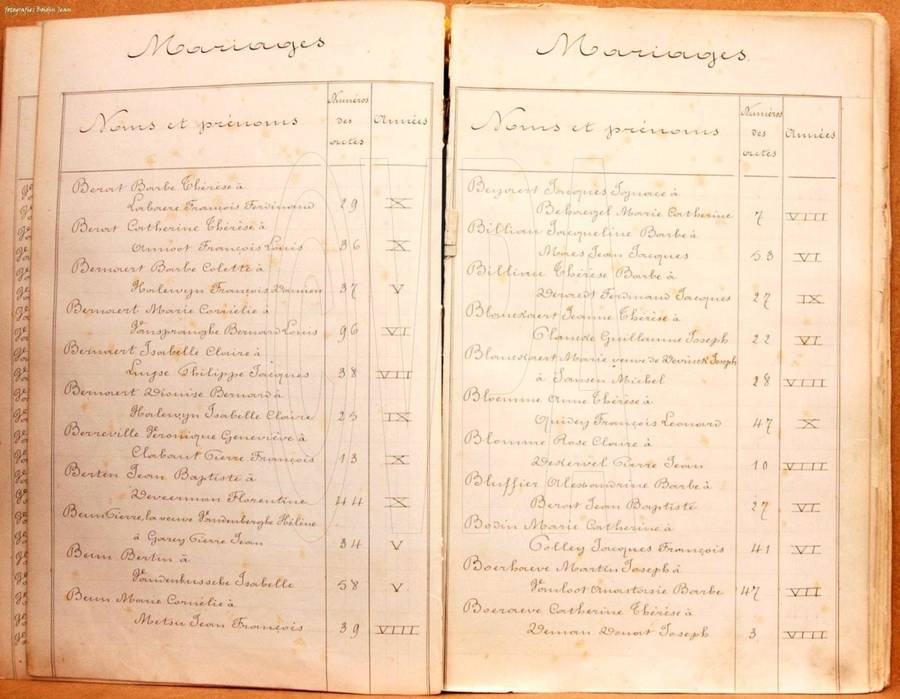 fotografies Boidin Jean
Mariages
Noms et prénoms
Numéros des actes
Années
Berat Barbe Thérèse à
Labaere François Ferdinand 29 X
Berat Catherine Thérèse à
Annoot François Louis 36 X
Bernaert Barbe Colette à
Halewyn François Damien 37 V
Bernaert Marie Cornélie à
Vanspranghe Bernard Louis 96 VI
Bernaert Isabelle Claire à
Luyse Philippe Jacques 38 VII
Bernaert Dionise Bernard à
Halewyn Isabelle Claire 25 IX
Berreville Véronique Geneviève à
Clabaut Pierre François 13 X
Berten Jean Baptiste à
Deveerman Florentine 44 X
Beun Pierre, la veuve Vandenberghe Hélène
à Garey Pierre Jean 34 V
Beun Bertin à
Vandenbussche Isabelle 58 V
Beun Marie Cornélie à
Metsu Jean François 39 VIII
Mariages
Noms et prénoms
Numéros des actes
Années
Beyaert Jacques Ignace à
Behaegel Marie Catherine 7 VIII
Billiau Jacqueline Barbe à
Maes Jean Jacques 53 VI
Billiau Thérèse Barbe à
Deraedt Ferdinand Jacques 27 IX
Blanckaert Jeanne Thérèse à
Plancke Guillaume Joseph 22 VI
Blanckaert Marie veuve de Devinck Joseph
à Jansen Michel 28 VIII
Bloemme Anne Thérèse à
Quidey François Léonard 47 X
Blomme Rose Claire à
Dekervel Pierre Jean 10 VIII
Bluffier Alexandrine Barbe à
Berat Jean Baptiste 27 VI
Bodin Marie Catherine à
Colley Jacques François 41 VI
Boerhaeve Martin Joseph à
Vanloot Anastasie Barbe 47 VII
Boeraeve Catherine Thérèse à
Deman Donat Joseph 3 VIII